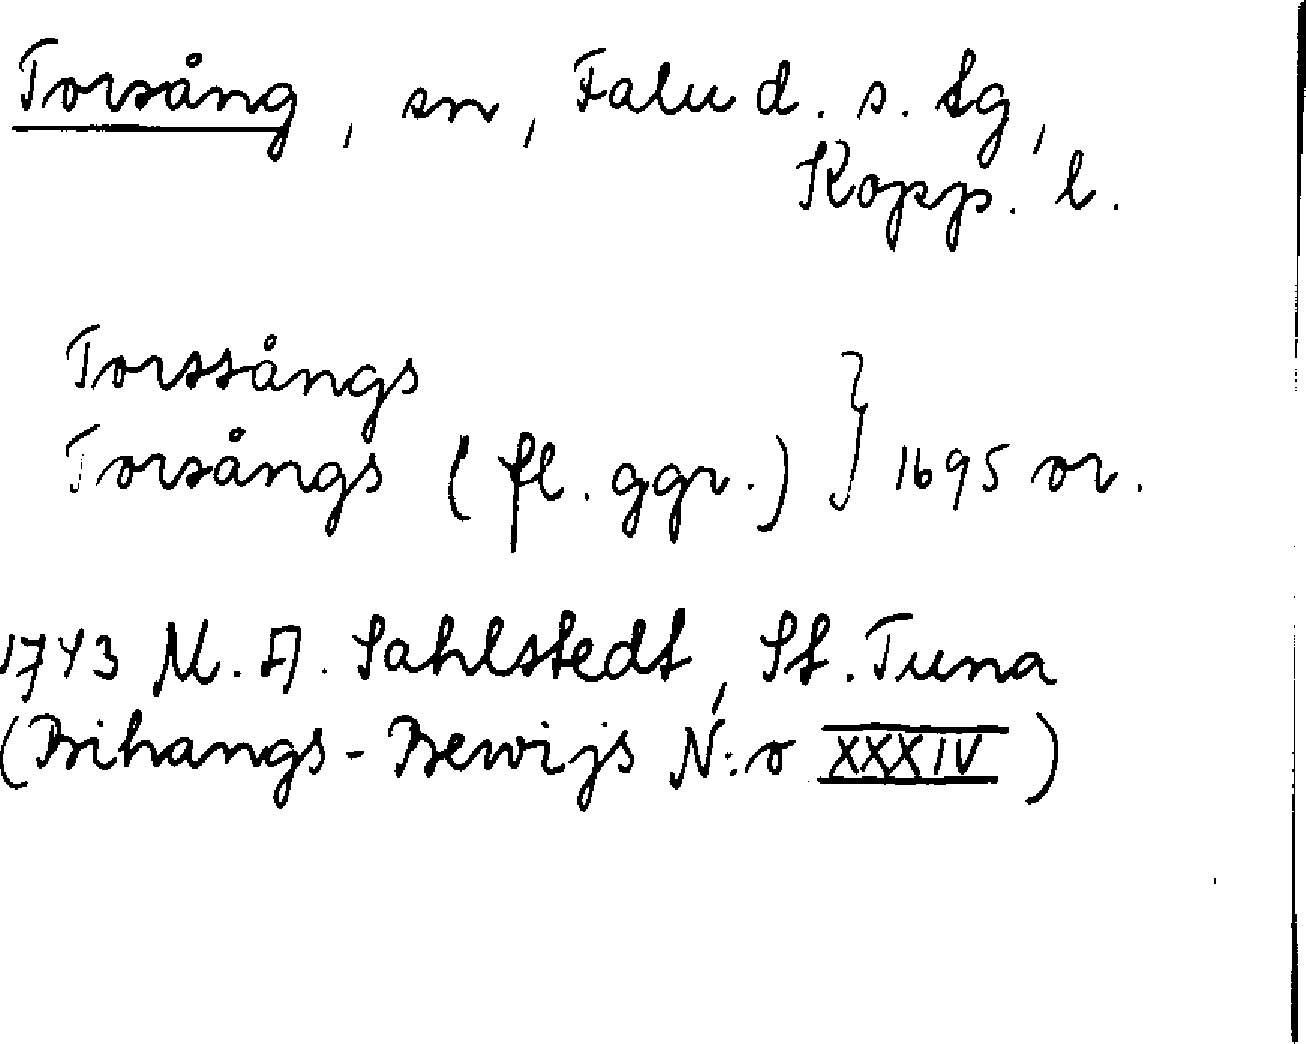 Torsång, sn, Falu d. s. tg,
Kopp. l.
Torssångs
Torsångs (fl. ggr.) } 1695 or.
1743 M. A. Sahlstedt, St. Tuna
(Bihangs-Bewijs N:o XXXIV)